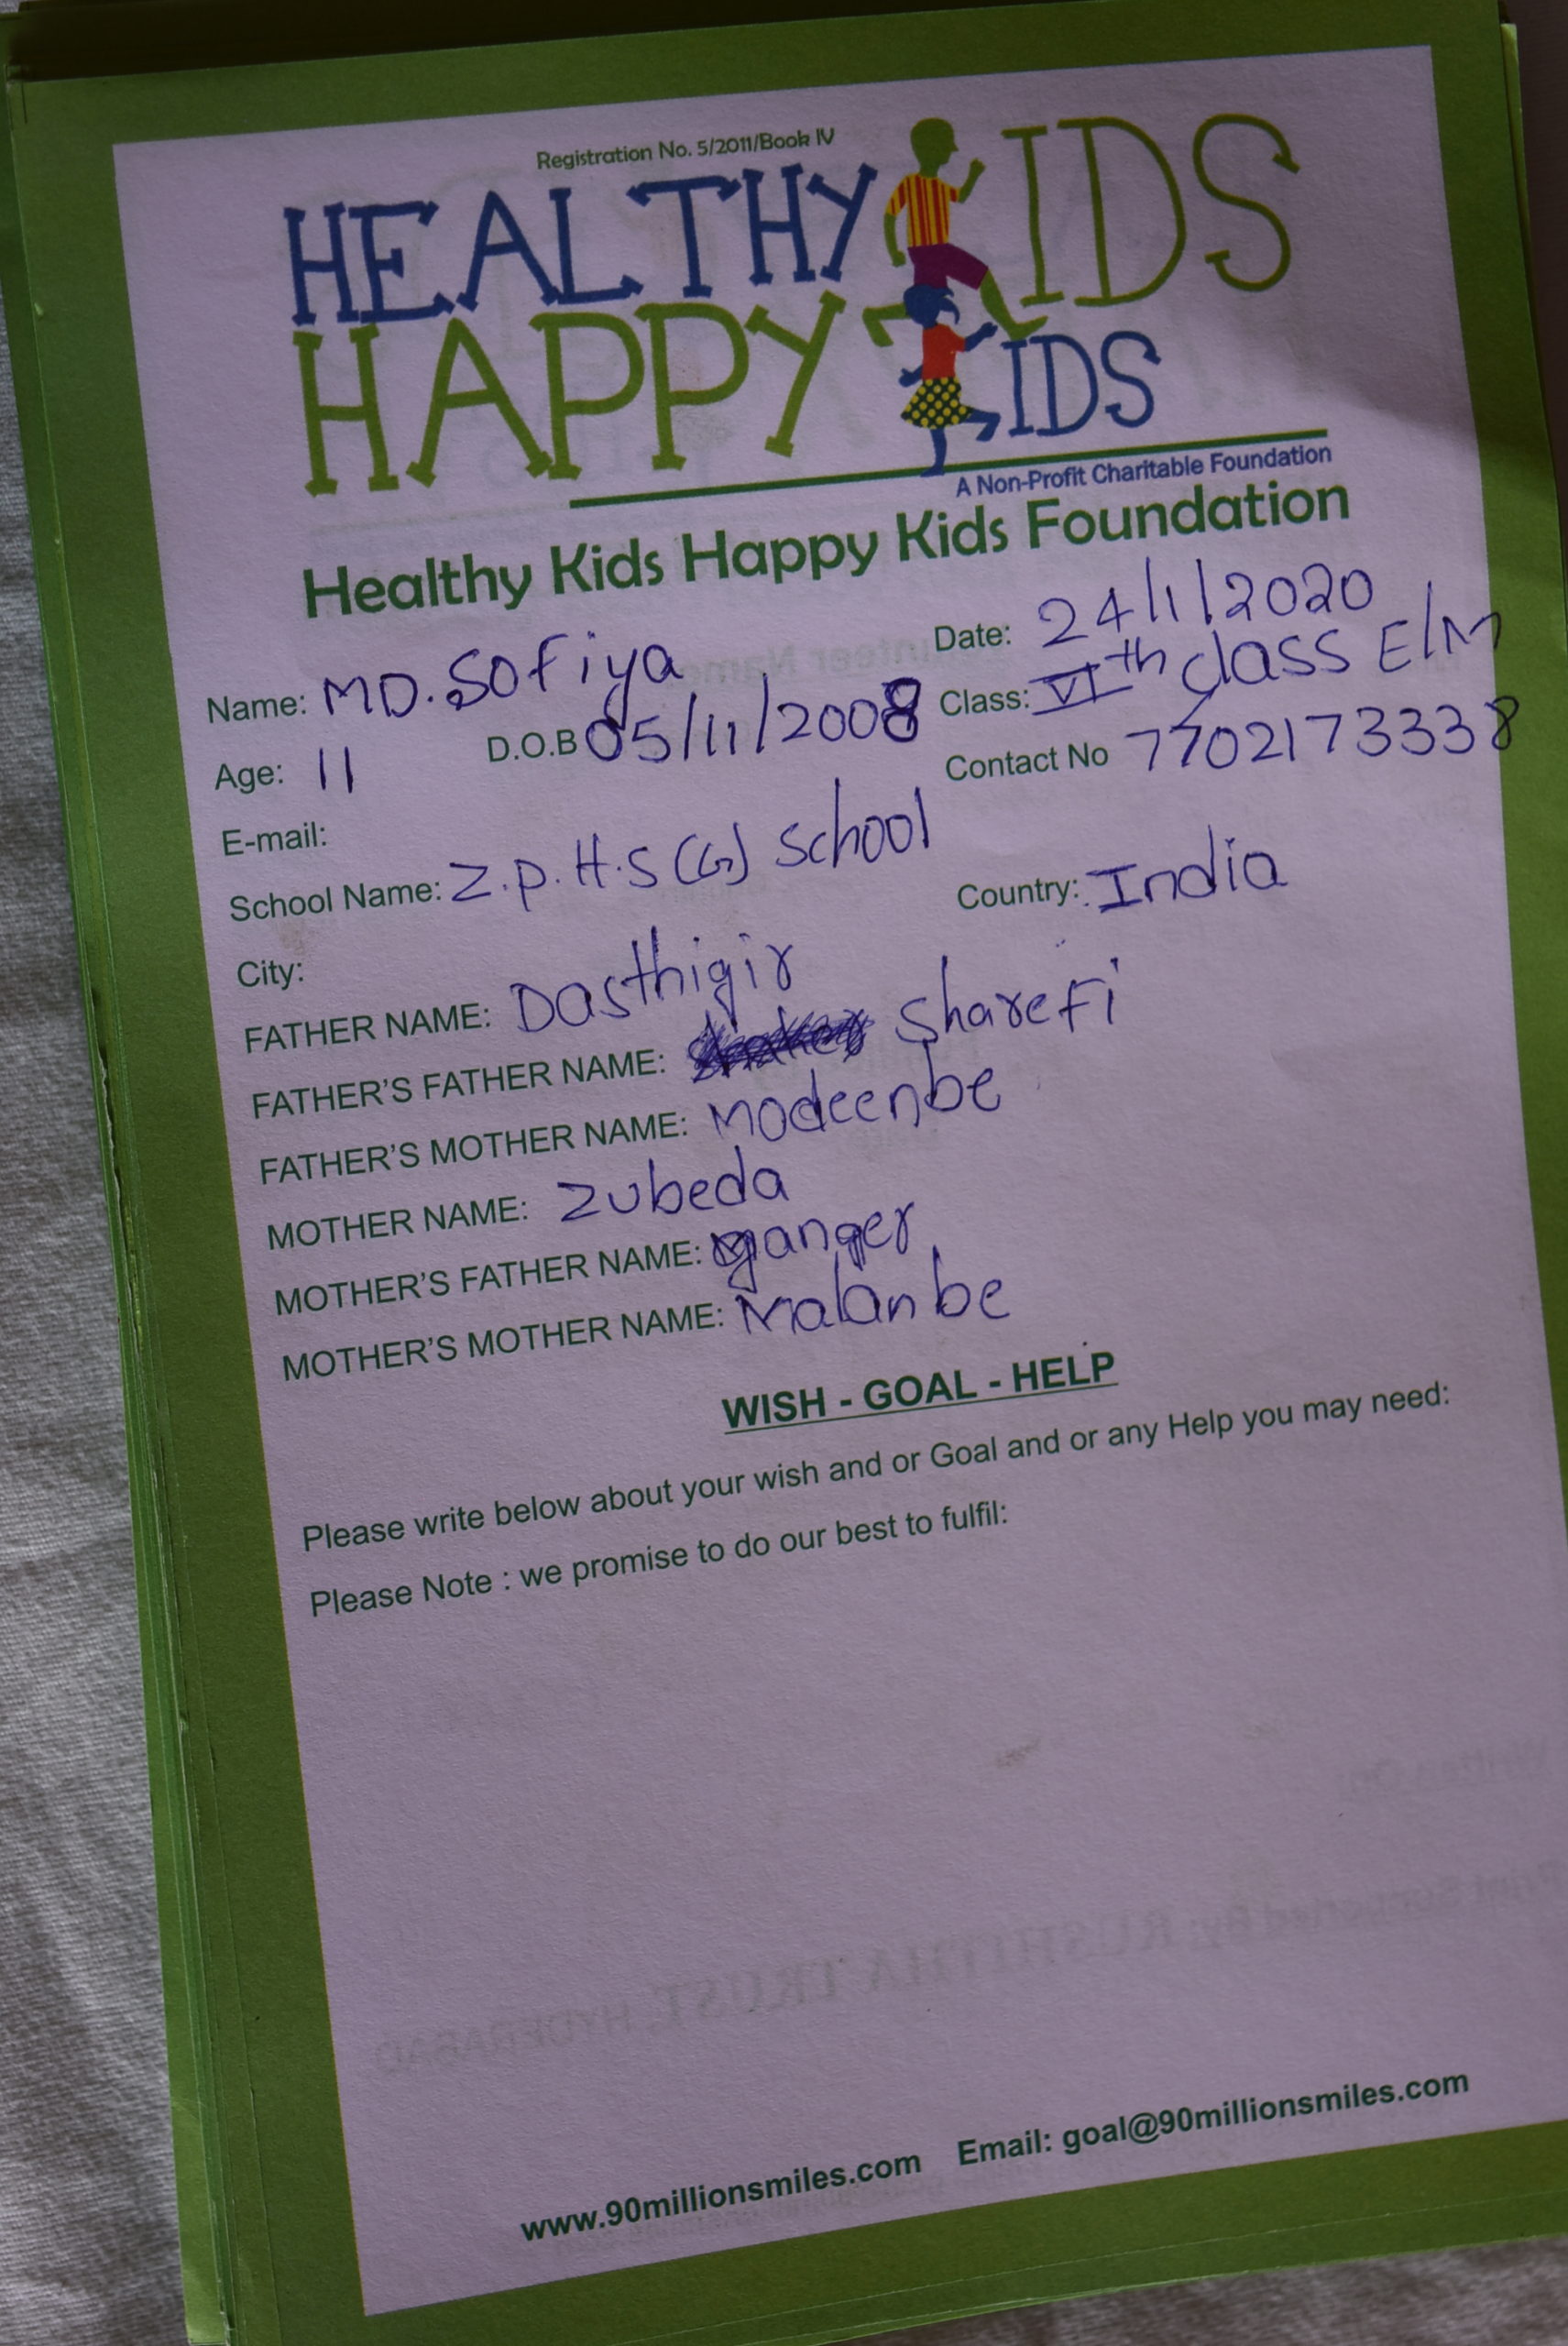 Registration No. 5/2011/Book IV
HEALTHY KIDS
HAPPY KIDS
A Non-Profit Charitable Foundation
Healthy Kids Happy Kids Foundation
Date: 24/1/2020
Name: MD. Sofiya
Class: VIth class E/M
Age: 11 D.O.B 05/11/2008
Contact No 7702173338
E-mail:
School Name: Z.P.H.S (G) School
Country: India
City:
FATHER NAME: Dasthigir
FATHER'S FATHER NAME: Sharefi
FATHER'S MOTHER NAME: Modeenbe
MOTHER NAME: Zubeda
MOTHER'S FATHER NAME:
MOTHER'S MOTHER NAME: Malanbe
WISH - GOAL - HELP
Please write below about your wish and or Goal and or any Help you may need:
Please Note : we promise to do our best to fulfil:
www.90millionsmiles.com Email: goal@90millionsmiles.com